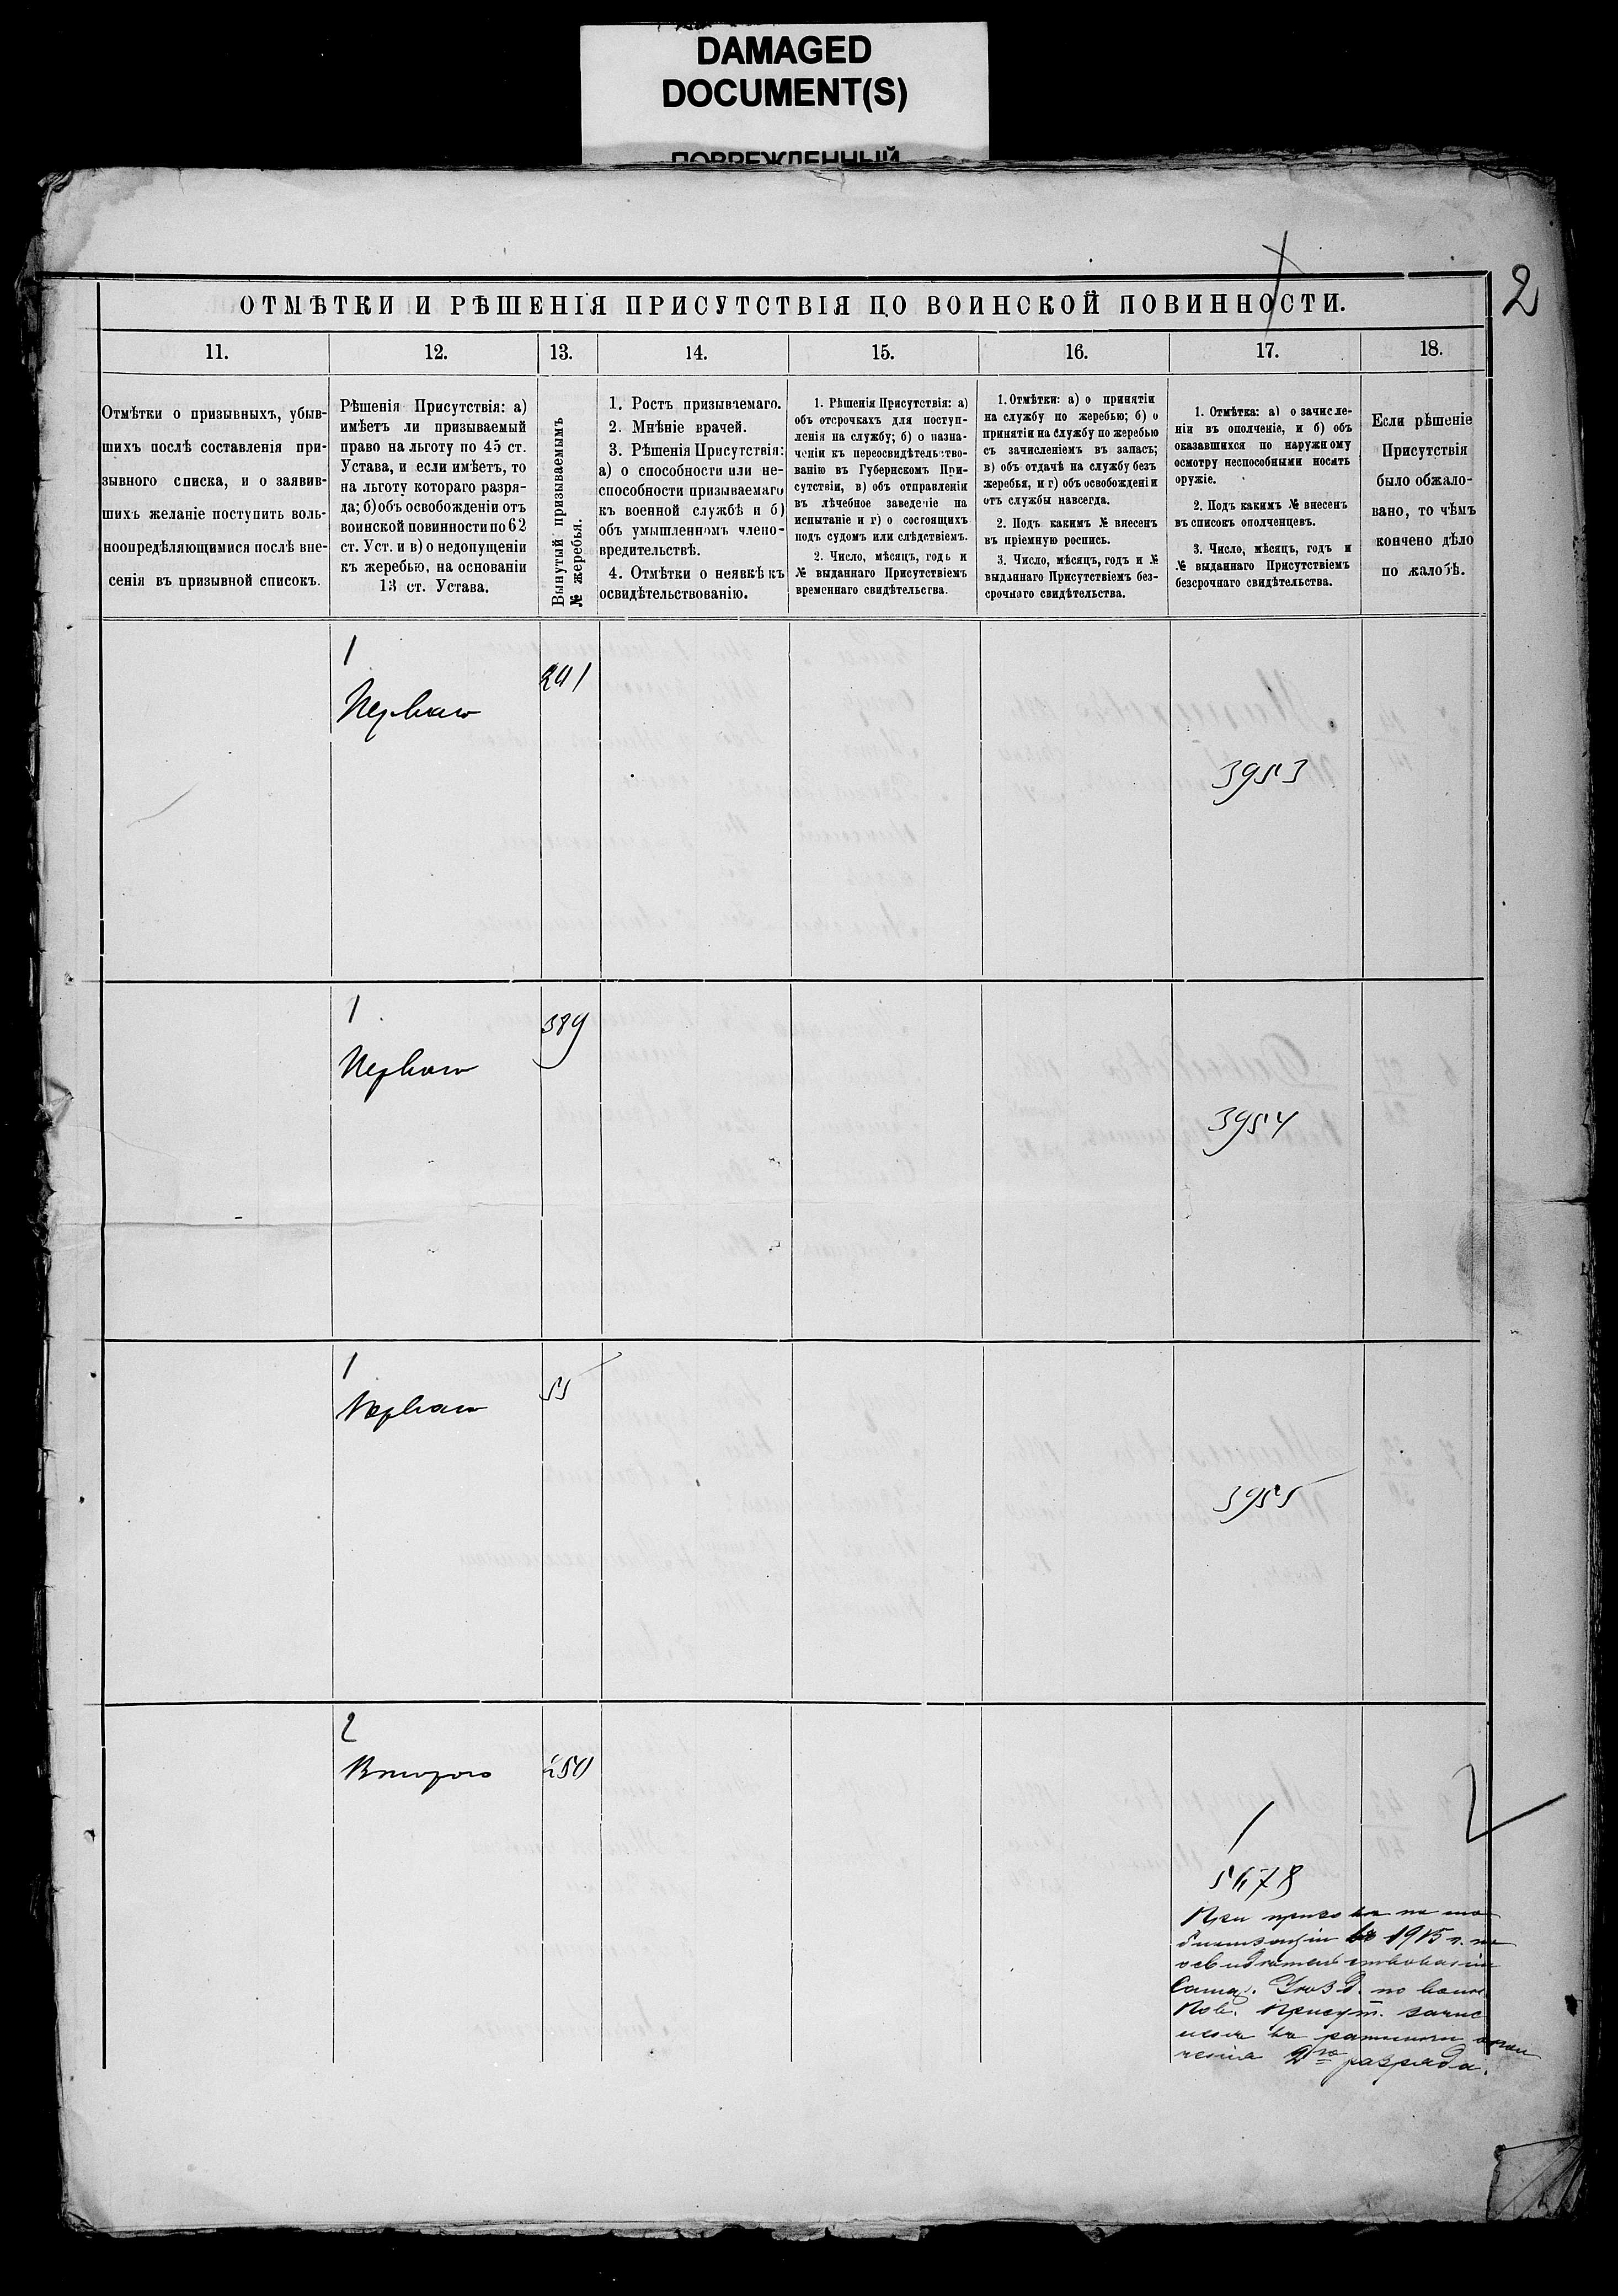 DAMAGED
DOCUMENT(S)
ПОВРЕЖДЕННЫЙ
2
ОТМѢТКИ И РѢШЕНІЯ ПРИСУТСТВІЯ ПО ВОИНСКОЙ ПОВИННОСТИ.
11.
12.
13.
14.
15.
16.
17.
18.
Отмѣтки о призывныхъ, убыв-
шихъ послѣ составленія при-
зывного списка, и о заявив-
шихъ желаніе поступить воль-
ноопредѣляющимися послѣ вне-
сенія въ призывной списокъ.
Рѣшенія Присутствія: а)
имѣетъ ли призываемый
право на льготу по 45 ст.
Устава, и если имѣетъ, то
на льготу котораго разря-
да; б) объ освобожденіи отъ
воинской повинности по 62
ст. Уст. и в) о недопущеніи
къ жеребью, на основаніи
13 ст. Устава.
Вынутый призываемымъ
№ жеребья.
1. Ростъ призываемаго.
2. Мнѣніе врачей.
3. Рѣшенія Присутствія:
а) о способности или не-
способности призываемаго
къ военной службѣ и б)
объ умышленномъ члено-
вредительствѣ.
4. Отмѣтки о неявкѣ къ
освидѣтельствованію.
1. Рѣшенія Присутствія: а)
объ отсрочкахъ для поступ-
ленія на службу; б) о назна-
ченіи къ переосвидѣтельство-
ванію въ Губернскомъ При-
сутствіи, в) объ отправленіи
въ лѣчебное заведеніе на
испытаніе и г) о состоящихъ
подъ судомъ или слѣдствіемъ.
2. Число, мѣсяцъ, годъ и
№ выданнаго Присутствіемъ
временнаго свидѣтельства.
1. Отмѣтки: а) о принятіи
на службу по жеребью; б) о
принятіи на службу по жеребью
съ зачисленіемъ въ запасъ;
в) объ отдачѣ на службу безъ
жеребья, и г) объ освобожденіи
отъ службы навсегда.
2. Подъ какимъ № внесенъ
въ пріемную роспись.
3. Число, мѣсяцъ, годъ и №
выданнаго Присутствіемъ без-
срочнаго свидѣтельства.
1. Отмѣтка: а) о зачисле-
ніи въ ополченіе, и б) объ
оказавшихся по наружному
осмотру неспособными носить
оружіе.
2. Подъ какимъ № внесенъ
въ списокъ ополченцевъ.
3. Число, мѣсяцъ, годъ и
№ выданнаго Присутствіемъ
безсрочнаго свидѣтельства.
Если рѣшеніе
Присутствія
было обжало-
вано, то чѣмъ
кончено дѣло
по жалобѣ.
1
Перваго
241
3953
1
Перваго
389
3954
1
Перваго
55
3955
2
Второго
250
1
5678
При призывѣ по мо
билизаціи въ 1915 г. по
освидѣтельствованіи
Самар. Уѣзд. по воин.
Пов. Присут. зачис
ленъ въ ратники опол
ченія 2го разряда.